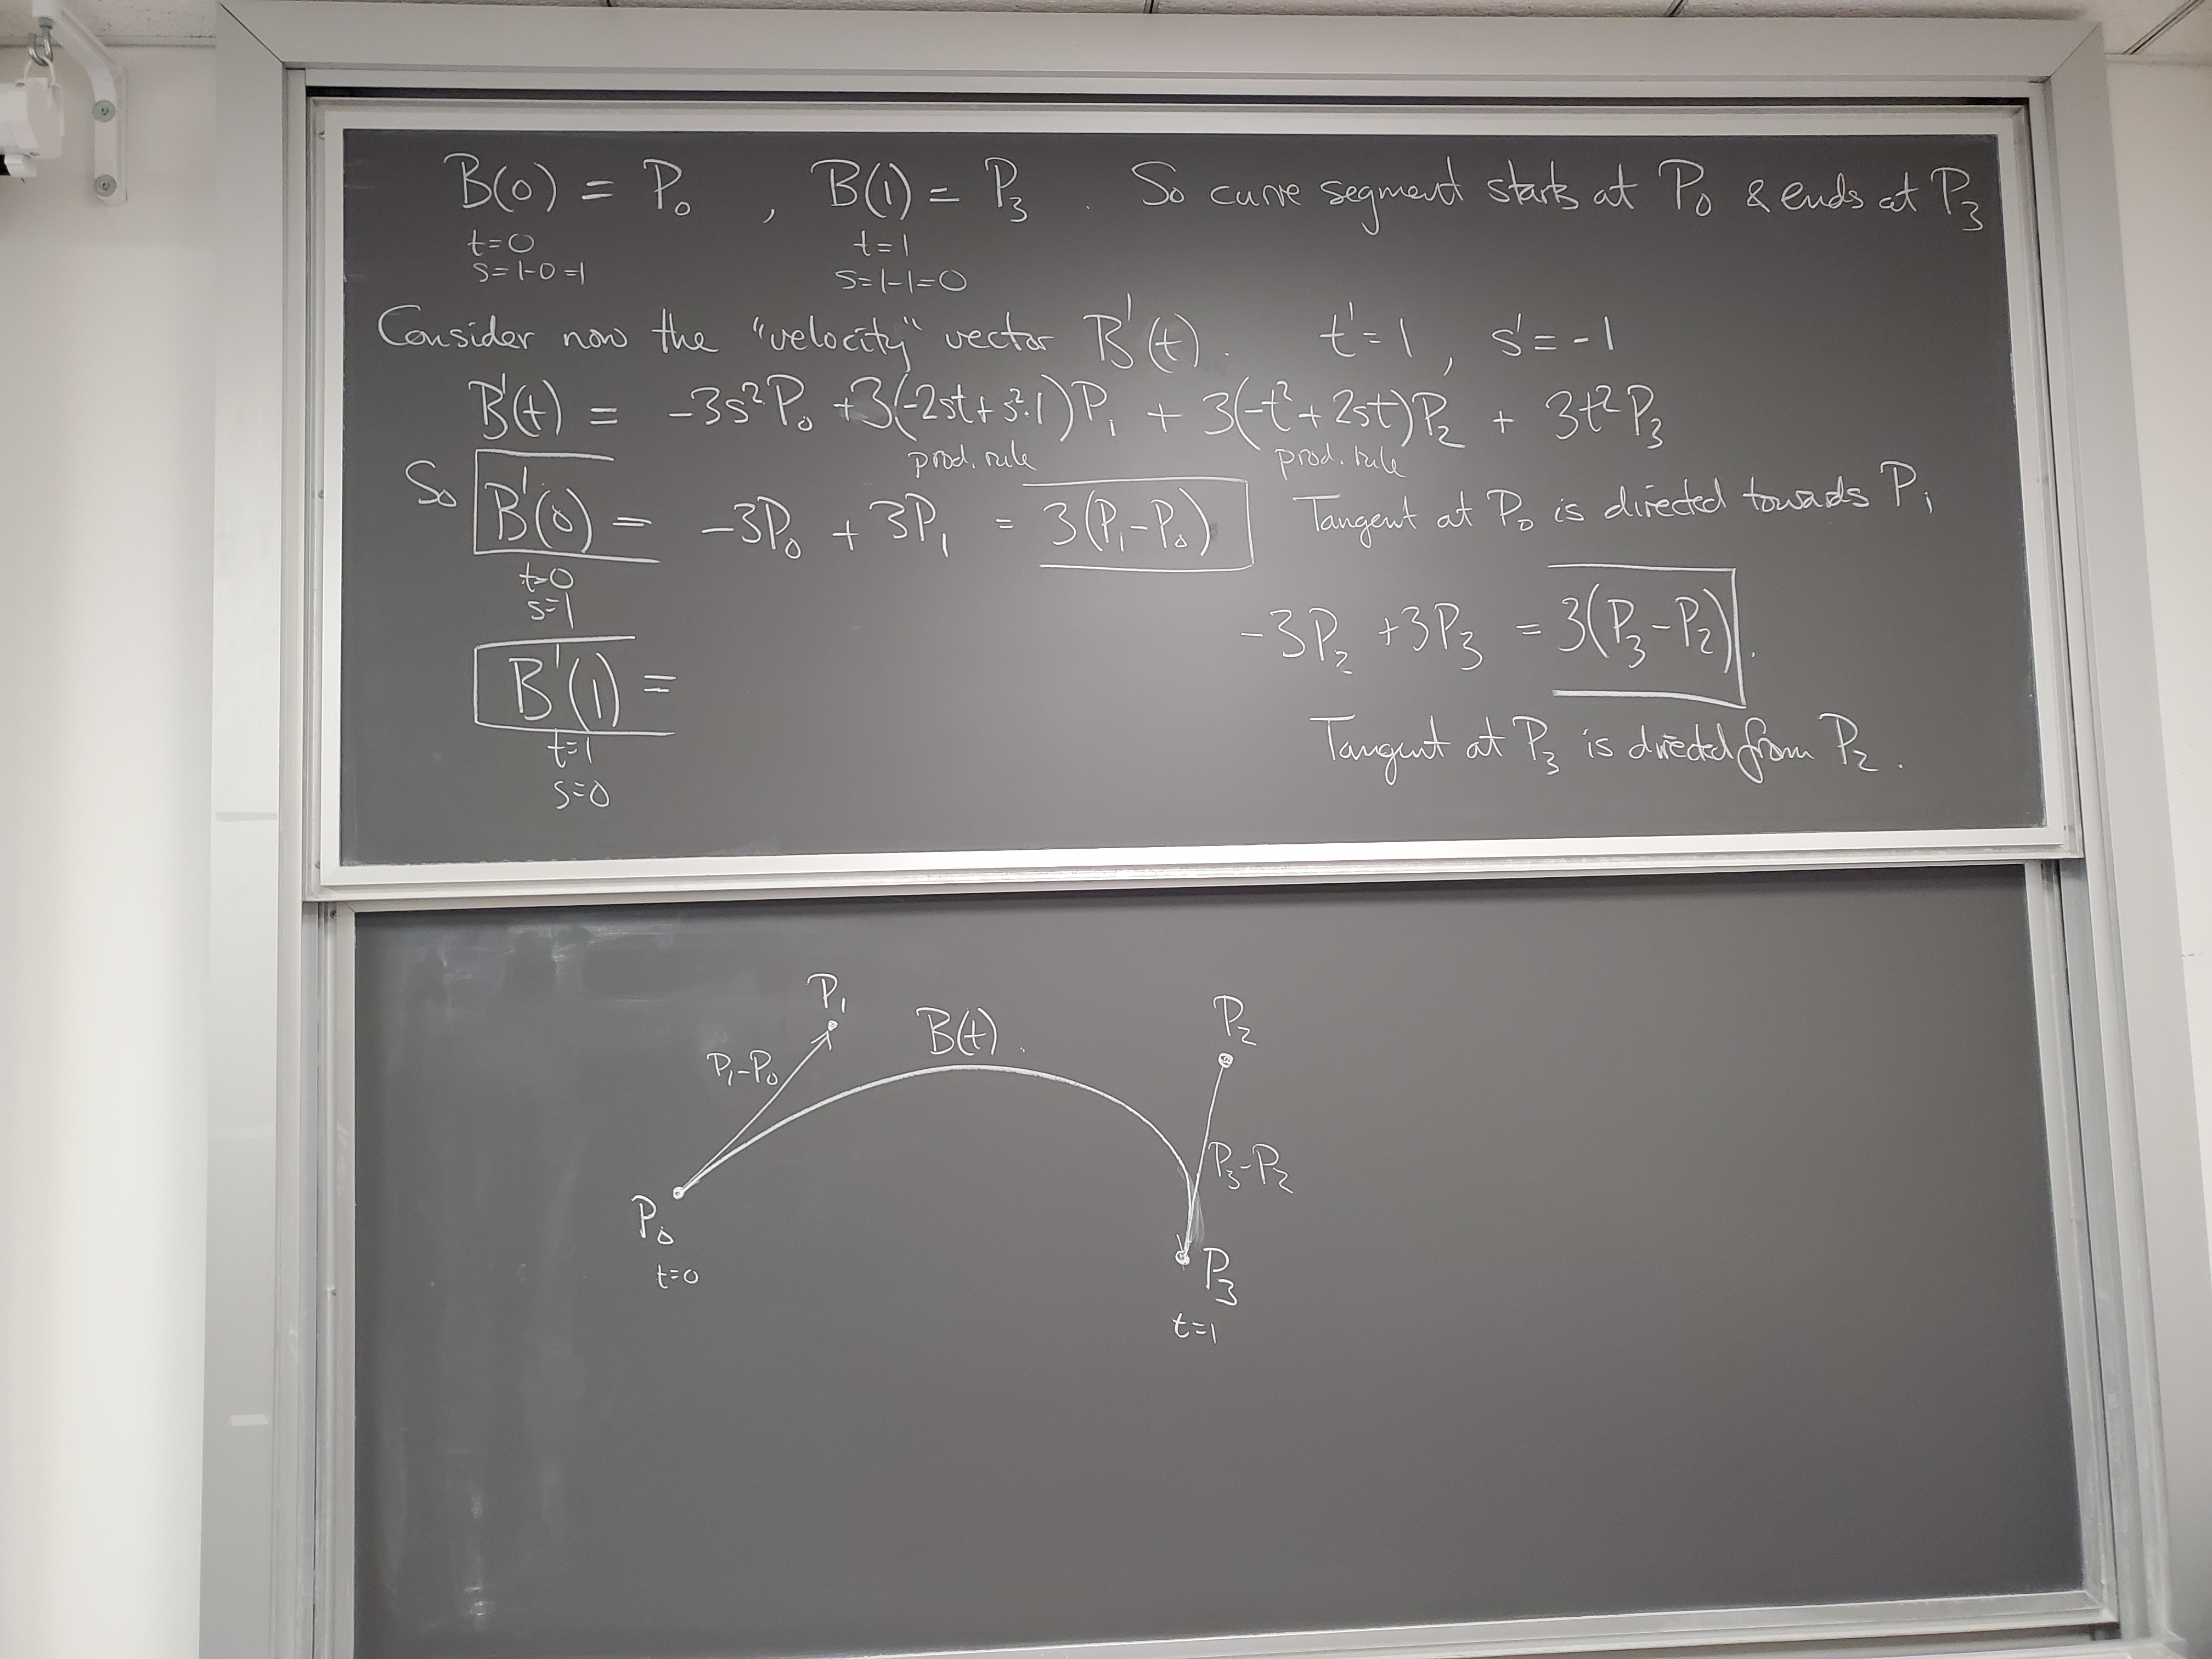 B(0) = P₀ , B(1) = P₃ . So curve segment starts at P₀ & ends at P₃
t=0 t=1
s=1-0=1 s=1-1=0
Consider now the "velocity" vector B'(t). t'=1, s'=-1
B'(t) = -3s²P₀ +3(-2st+s²·1)P₁ + 3(-t²+2st)P₂ + 3t²P₃
prod. rule prod. rule
So B'(0) = -3P₀ + 3P₁ = 3(P₁-P₀) Tangent at P₀ is directed towards P₁
t=0
s=1
B'(1) = -3P₂ +3P₃ = 3(P₃-P₂).
t=1
s=0
Tangent at P₃ is directed from P₂.
P₁
B(t).
P₂
P₁-P₀
P₃-P₂
P₀
t=0
P₃
t=1